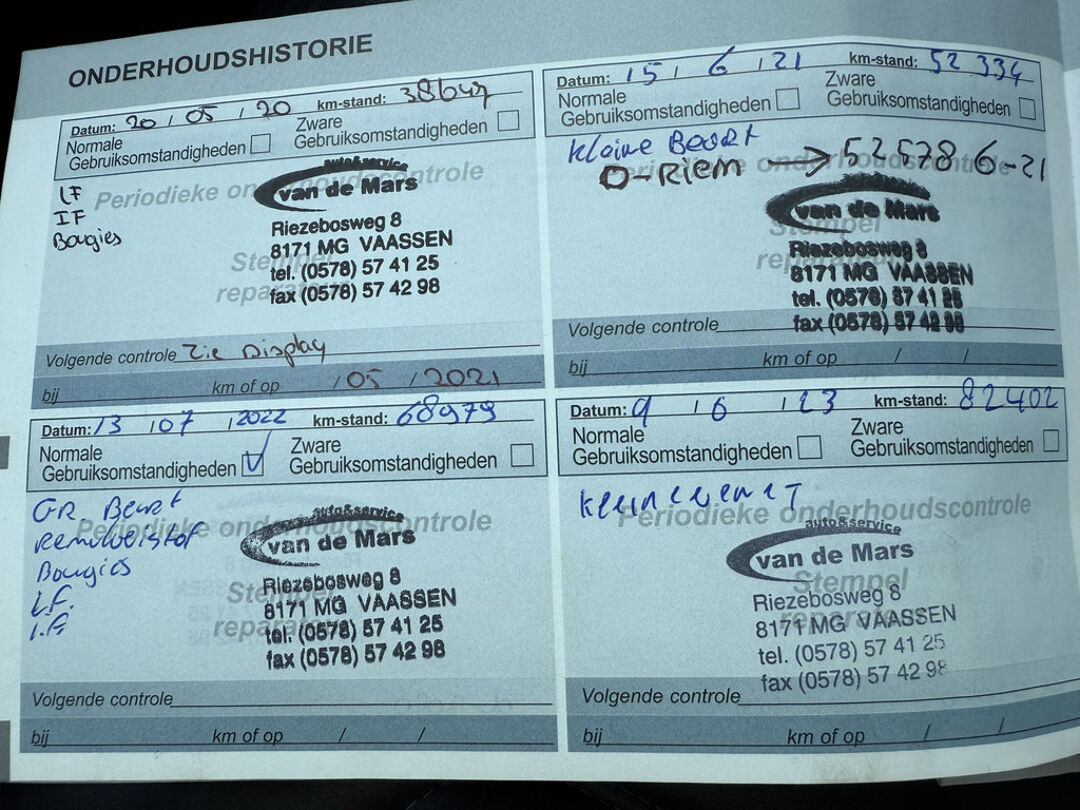 ONDERHOUDSHISTORIE
Datum: 20 / 05 / 20 km-stand: 38647
Normale Gebruiksomstandigheden
Zware Gebruiksomstandigheden
LF
IF
Bougies
Periodieke onderhoudscontrole
auto&service
van de Mars
Riezebosweg 8
8171 MG VAASSEN
tel. (0578) 57 41 25
fax (0578) 57 42 98
Volgende controle Zie Display
bij km of op /05 /2021
Datum: 15 / 6 / 21 km-stand: 52334
Normale Gebruiksomstandigheden
Zware Gebruiksomstandigheden
Kleine Beurt
O-Riem → 52578 6-21
van de Mars
Stempel
Riezebosweg 8
8171 MG VAASSEN
tel. (0578) 57 41 25
fax (0578) 57 42 98
Volgende controle
bij km of op / /
Datum: 13 / 07 / 2022 km-stand: 68979
Normale Gebruiksomstandigheden
Zware Gebruiksomstandigheden
GR Beurt
Remvloeistof
Bougies
L.F.
I.F.
Periodieke onderhoudscontrole
auto&service
van de Mars
Riezebosweg 8
8171 MG VAASSEN
tel. (0578) 57 41 25
fax (0578) 57 42 98
Volgende controle
bij km of op / /
Datum: 9 / 6 / 23 km-stand: 82402
Normale Gebruiksomstandigheden
Zware Gebruiksomstandigheden
Periodieke onderhoudscontrole
auto&service
van de Mars
Stempel
Riezebosweg 8
8171 MG VAASSEN
tel. (0578) 57 41 25
fax (0578) 57 42 98
Volgende controle
bij km of op / /